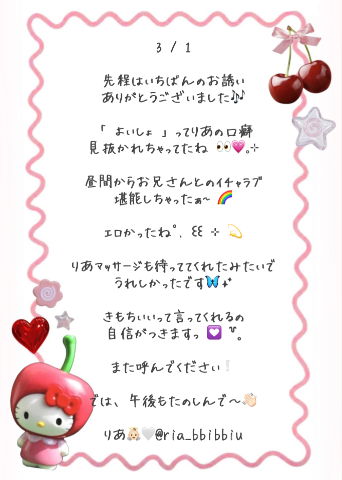 3 / 1
先程はいちばんのお誘い
ありがとうございました🎶
「 よいしょ 」ってりあの口癖
見抜かれちゃってたね 👀💗｡⊹
昼間からお兄さんとのイチャラブ
堪能しちゃったぁ~ 🌈
ｴﾛかったねﾟ. ꒰꒰ ⊹ 💫
りあﾏｯｻｰｼﾞも待っててくれたみたいで
うれしかったです🦋
きもちいいって言ってくれるの
自信がつきますっ 💟
また呼んでください❕
では、午後もたのしんで〜👋🏻
りあ👶🏻🤍@ria_bbibbiu